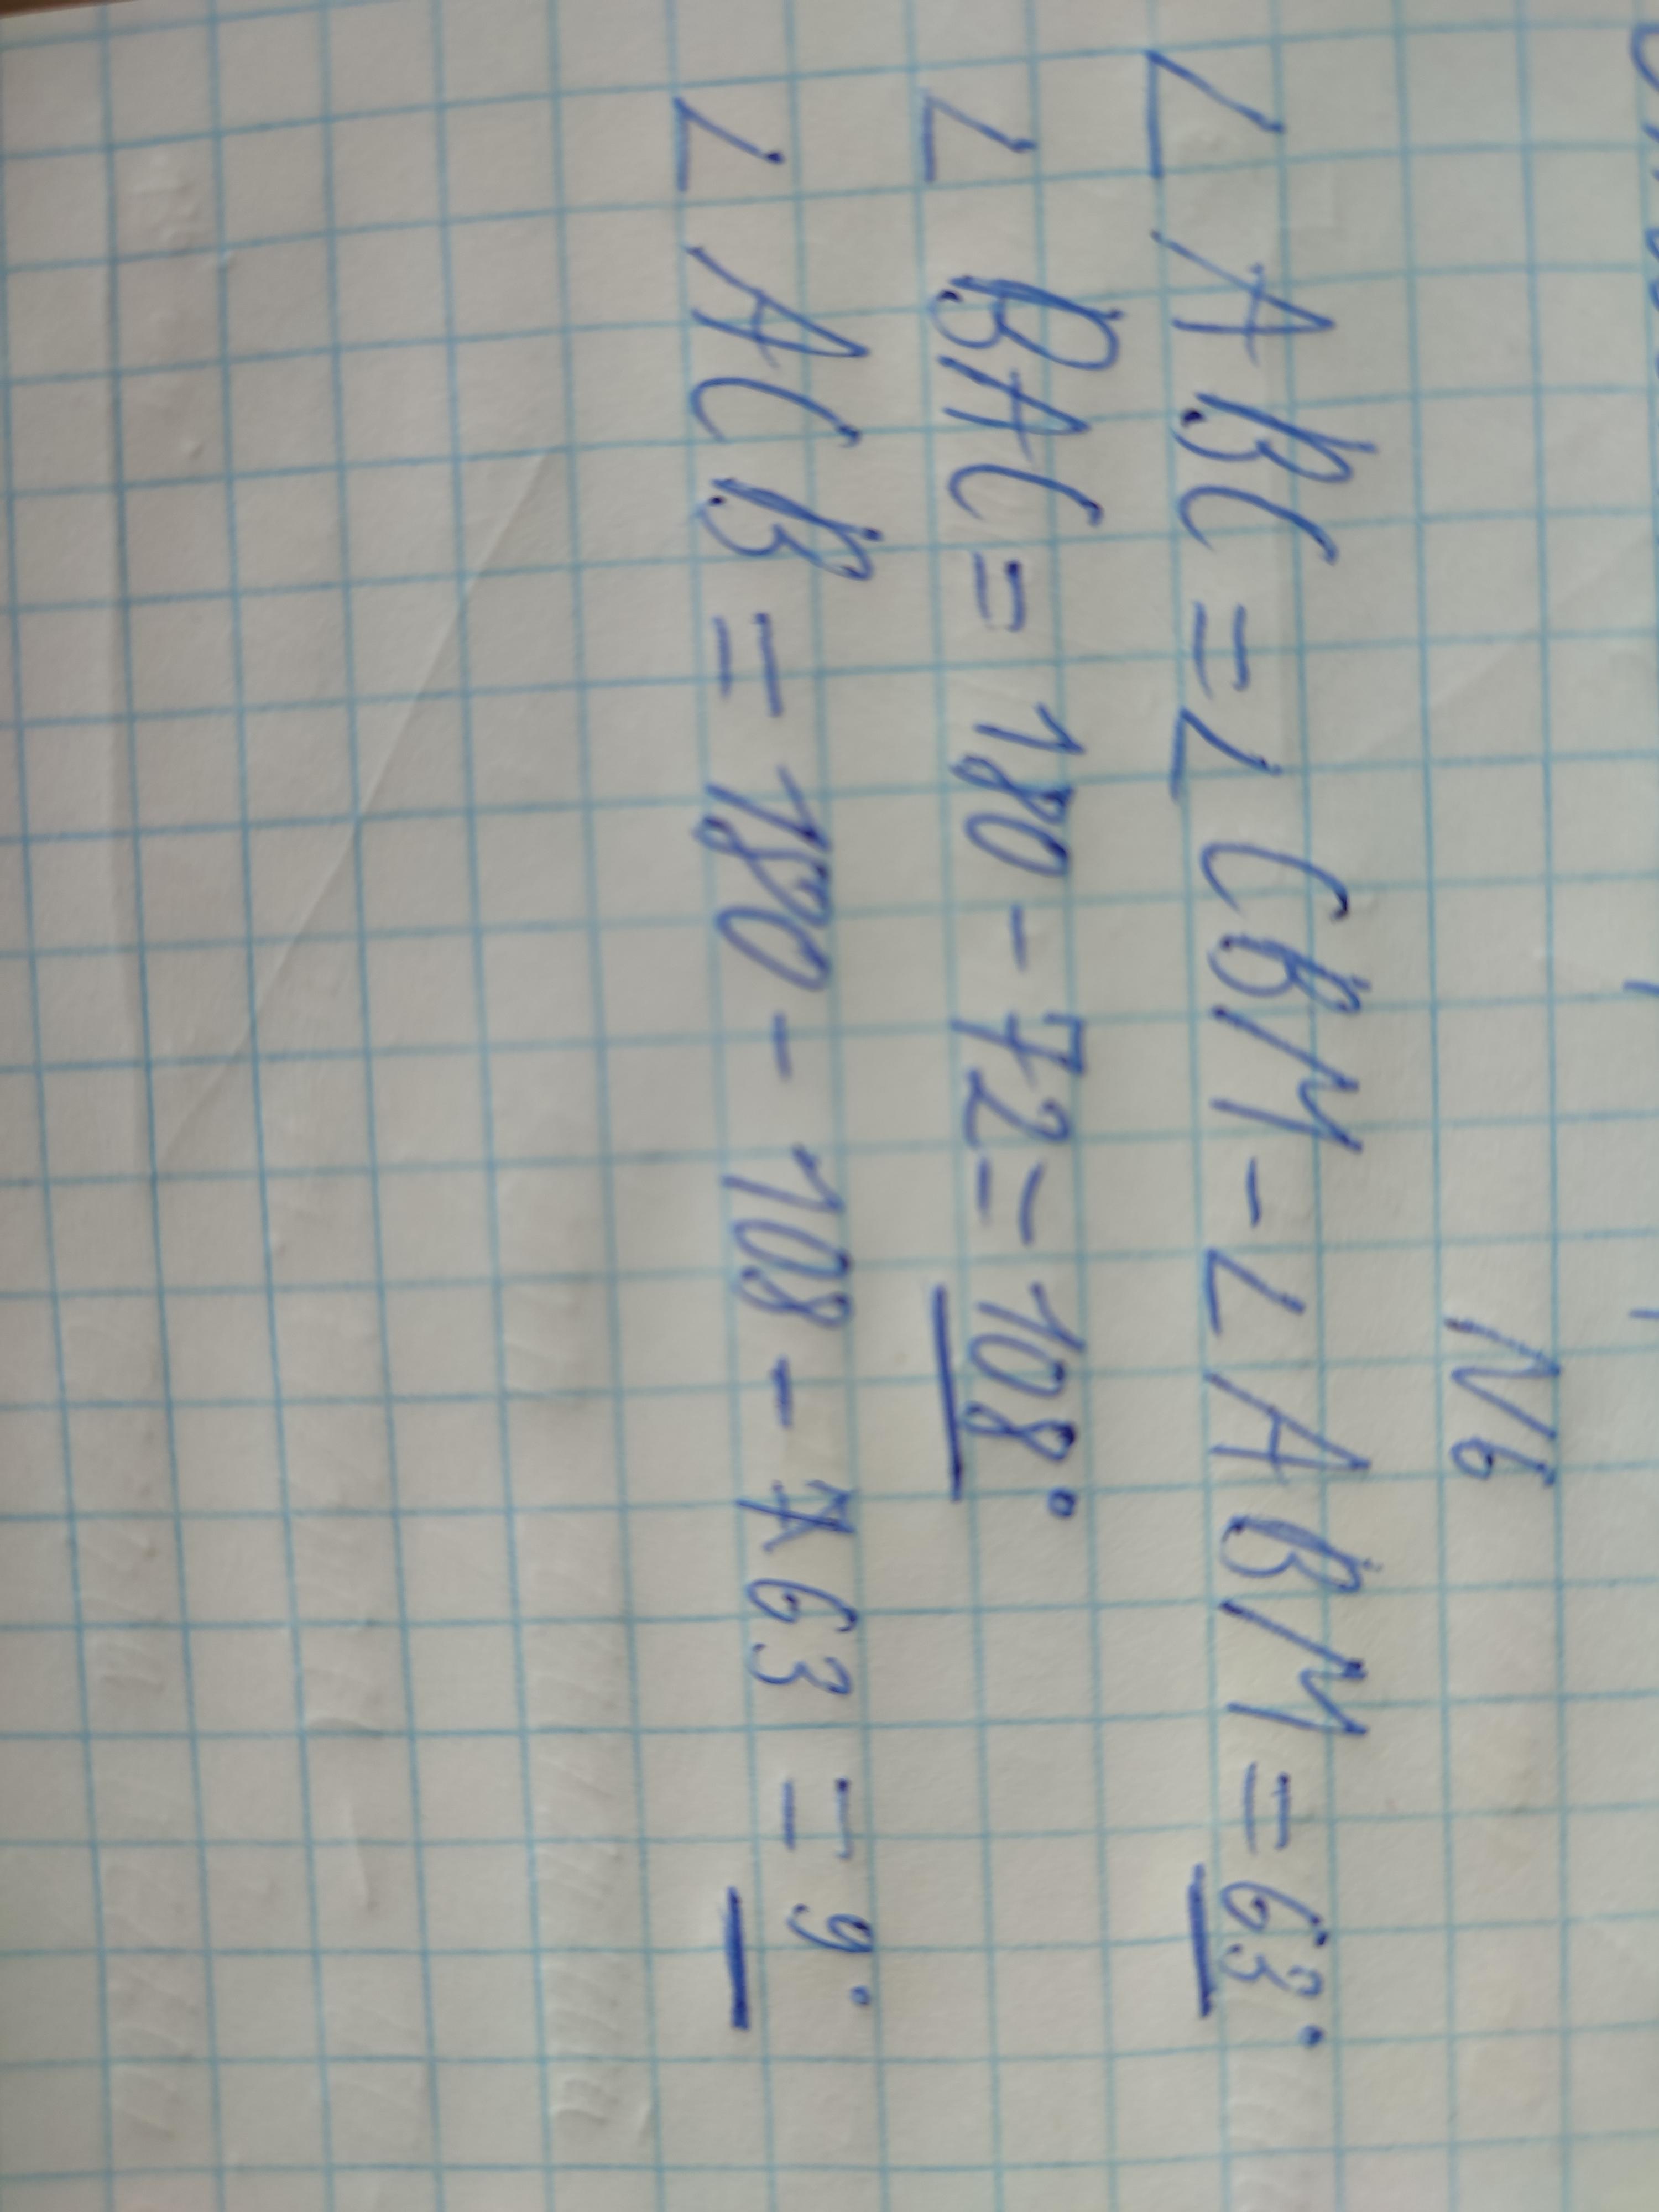 N6
∠ABC = ∠CBM - ∠ABM = 63°
∠BAC = 180 - 72 = 108°
∠ACB = 180 - 108 - 63 = 9°